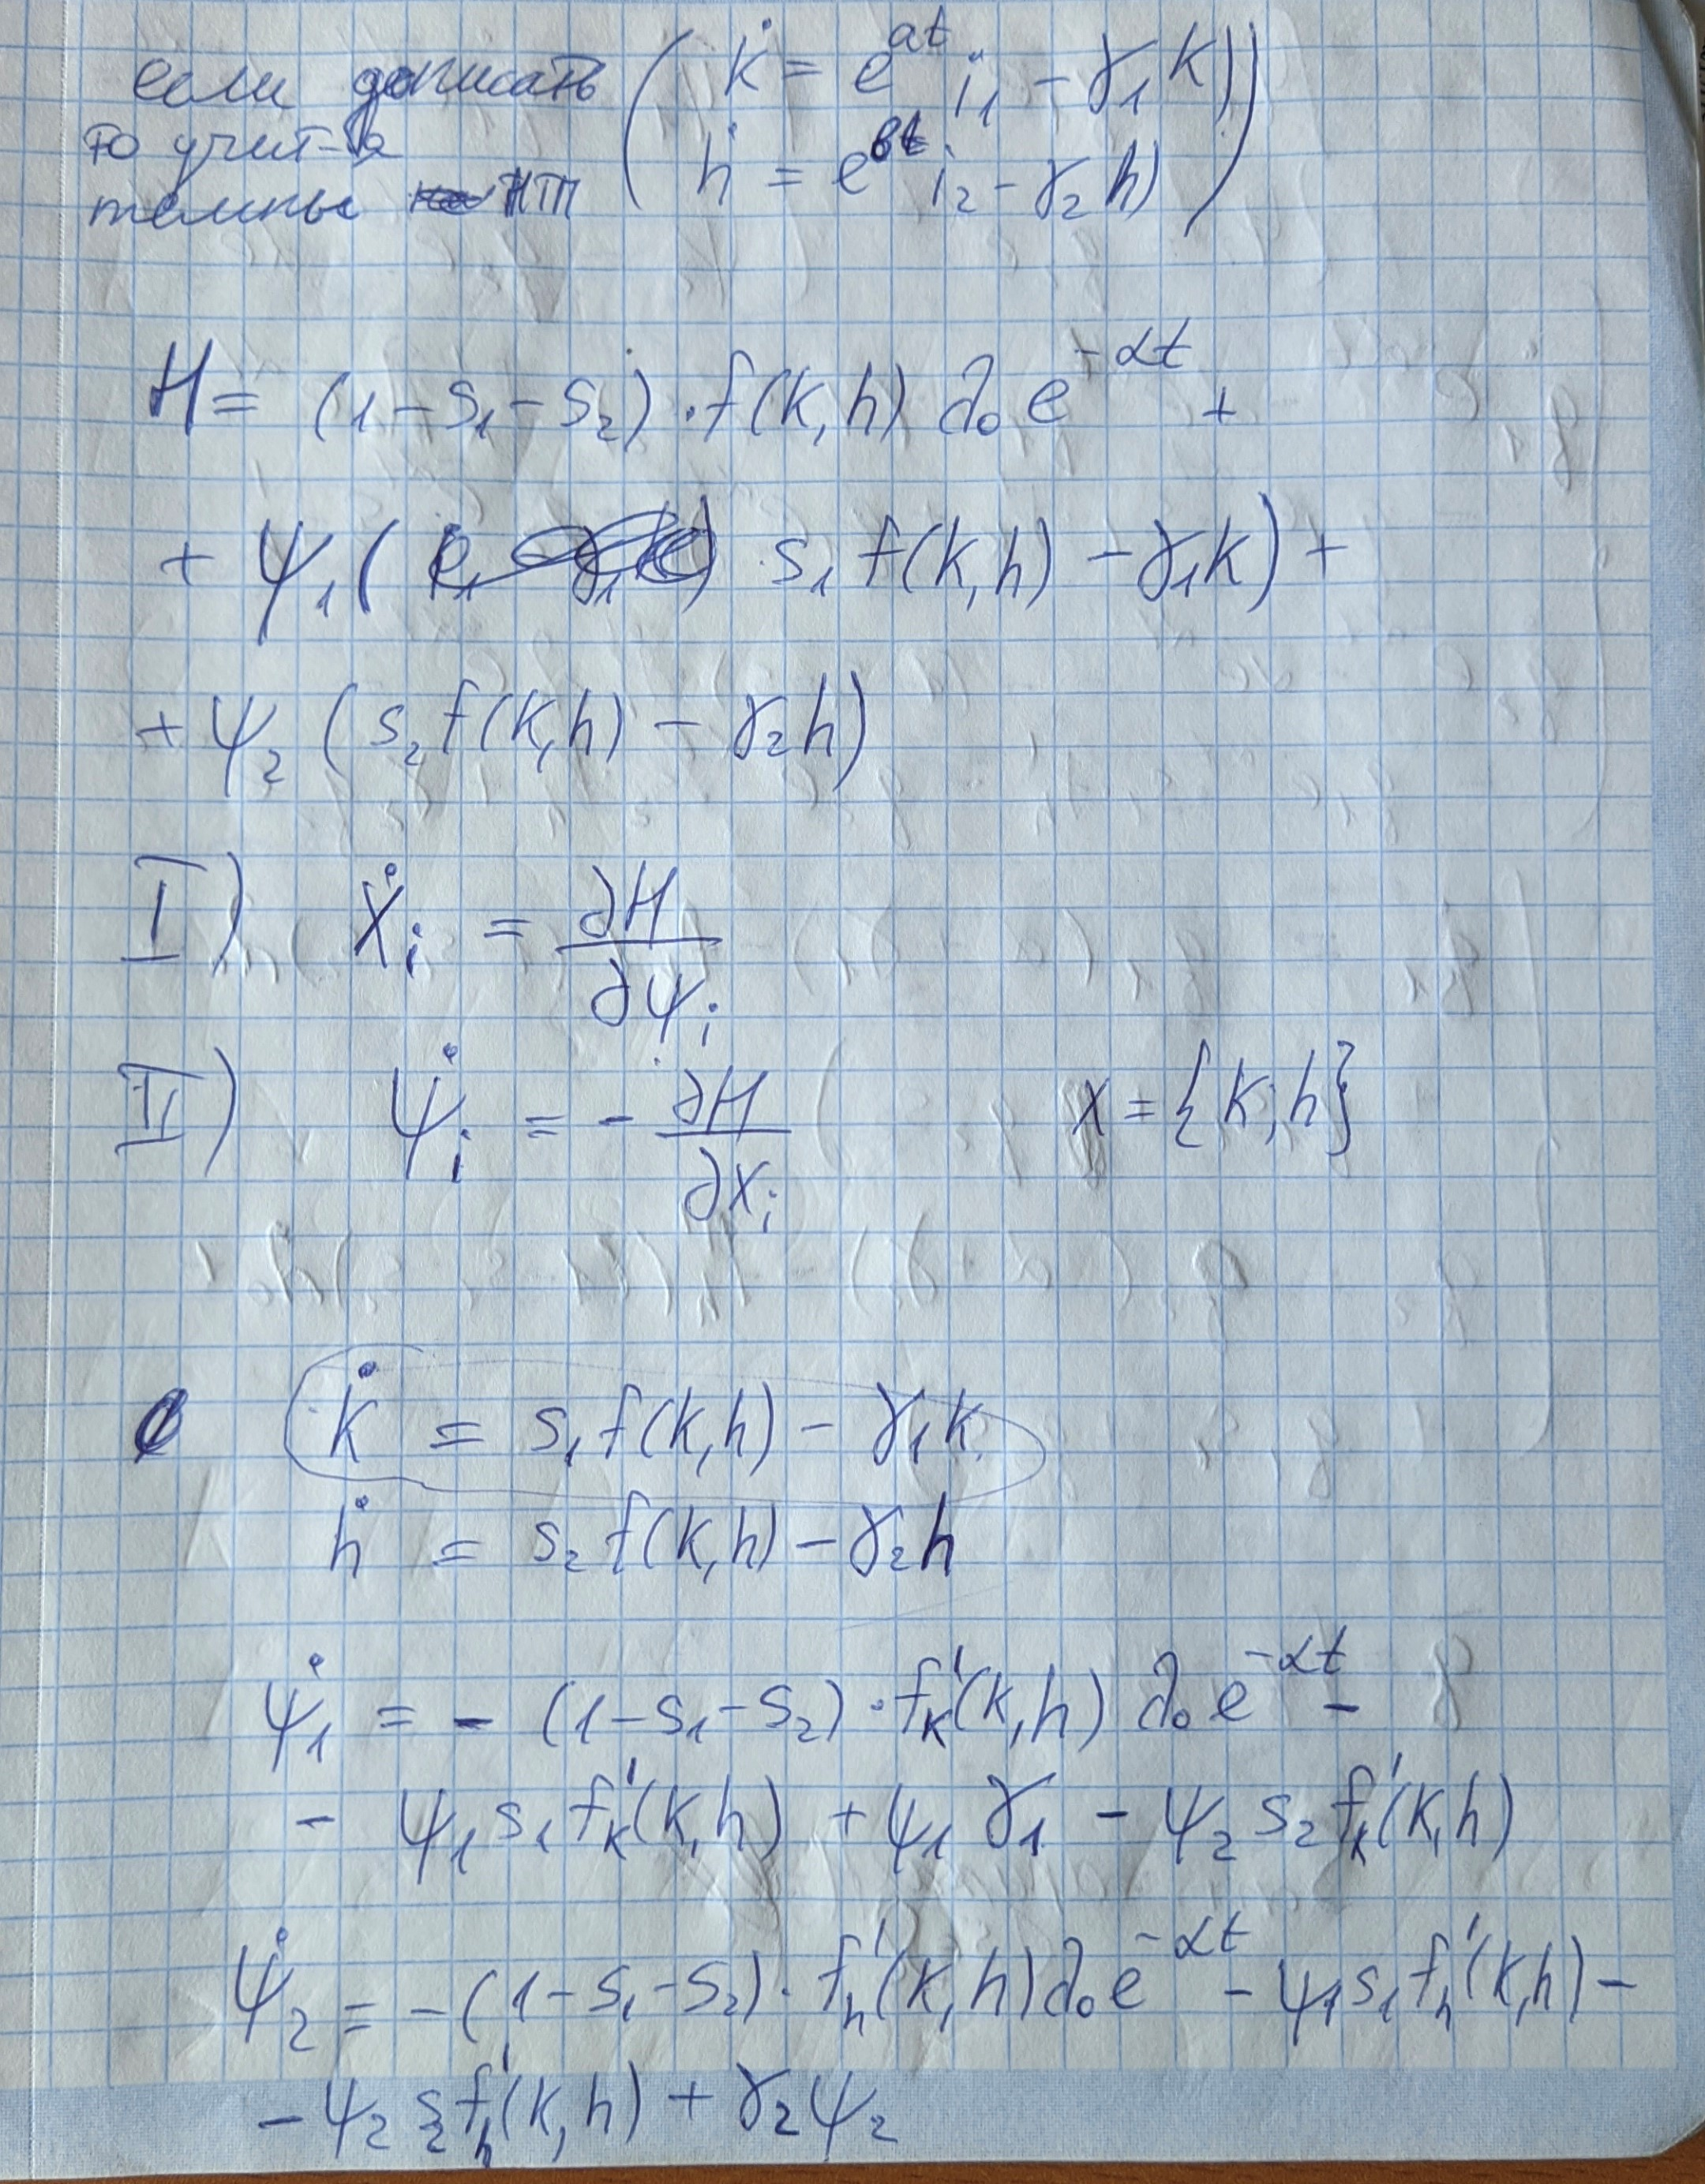 если дописать ( k̇ = e^{at} i₁ - γ₁k)
то учит-ся
темпы НТП ( ḣ = e^{bt} i₂ - γ₂h) )
H = (1 - s₁ - s₂) · f(k, h) λ₀ e^{-αt} +
+ ψ₁ ( s₁ f(k, h) - γ₁k) +
+ ψ₂ (s₂ f(k, h) - γ₂h)
I) ẋᵢ = ∂H/∂ψᵢ
II) ψ̇ᵢ = - ∂H/∂xᵢ x = {k; h}
k̇ = s₁ f(k, h) - γ₁k
ḣ = s₂ f(k, h) - γ₂h
ψ̇₁ = - (1 - s₁ - s₂) · f'ₖ(k, h) λ₀ e^{-αt} -
- ψ₁ s₁ f'ₖ(k, h) + ψ₁ γ₁ - ψ₂ s₂ f'ₖ(k, h)
ψ̇₂ = - (1 - s₁ - s₂) · f'ₕ(k, h) λ₀ e^{-αt} - ψ₁ s₁ f'ₕ(k, h) -
- ψ₂ s₂ f'ₕ(k, h) + γ₂ ψ₂